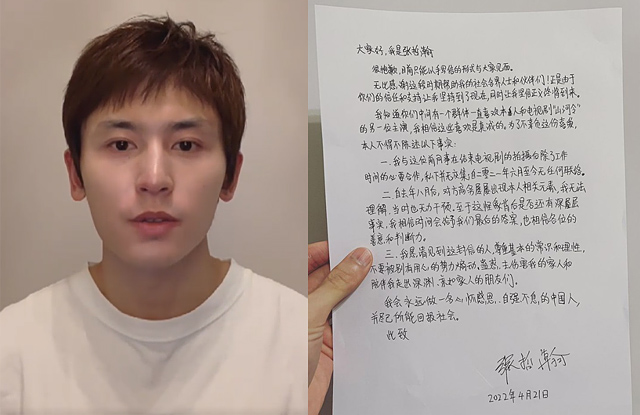 大家好，我是张哲瀚
很抱歉，目前只能以手写信的形式与大家见面。
无比感谢这段时期帮助我的社会各界人士和伙伴们！正是由于
你们的信任和支持让我坚持到了现在，同时让我坚信正义终将到来。
我知道你们中间有一个群体一直喜欢本人和电视剧“山河令”
的另一位主演，我相信这些喜欢是真诚的。为了不辜负这份喜爱，
本人不得不陈述以下事实：
一、我与这位前同事在结束电视剧的拍摄后除了工作
时间的必要合作，私下并无交集，自二零二一年六月至今无任何联络。
二、自去年八月后，对方频繁展现本人相关元素，我无法
理解，当时也无力干预。至于这现象背后是否还有深层
事实，我相信时间会给予我们最后的答案，也相信各位的
善意和判断力。
三、我恳请见到这封信的人，尊重基本的常识和理性，
不要被别有用心的势力煽动、蛊惑，去伤害我的家人和
陪伴我走出深渊、亲如家人的朋友们。
我会永远做一名心怀感恩、自强不息的中国人，
并尽己所能回报社会。
此致
张哲瀚
2022年4月21日